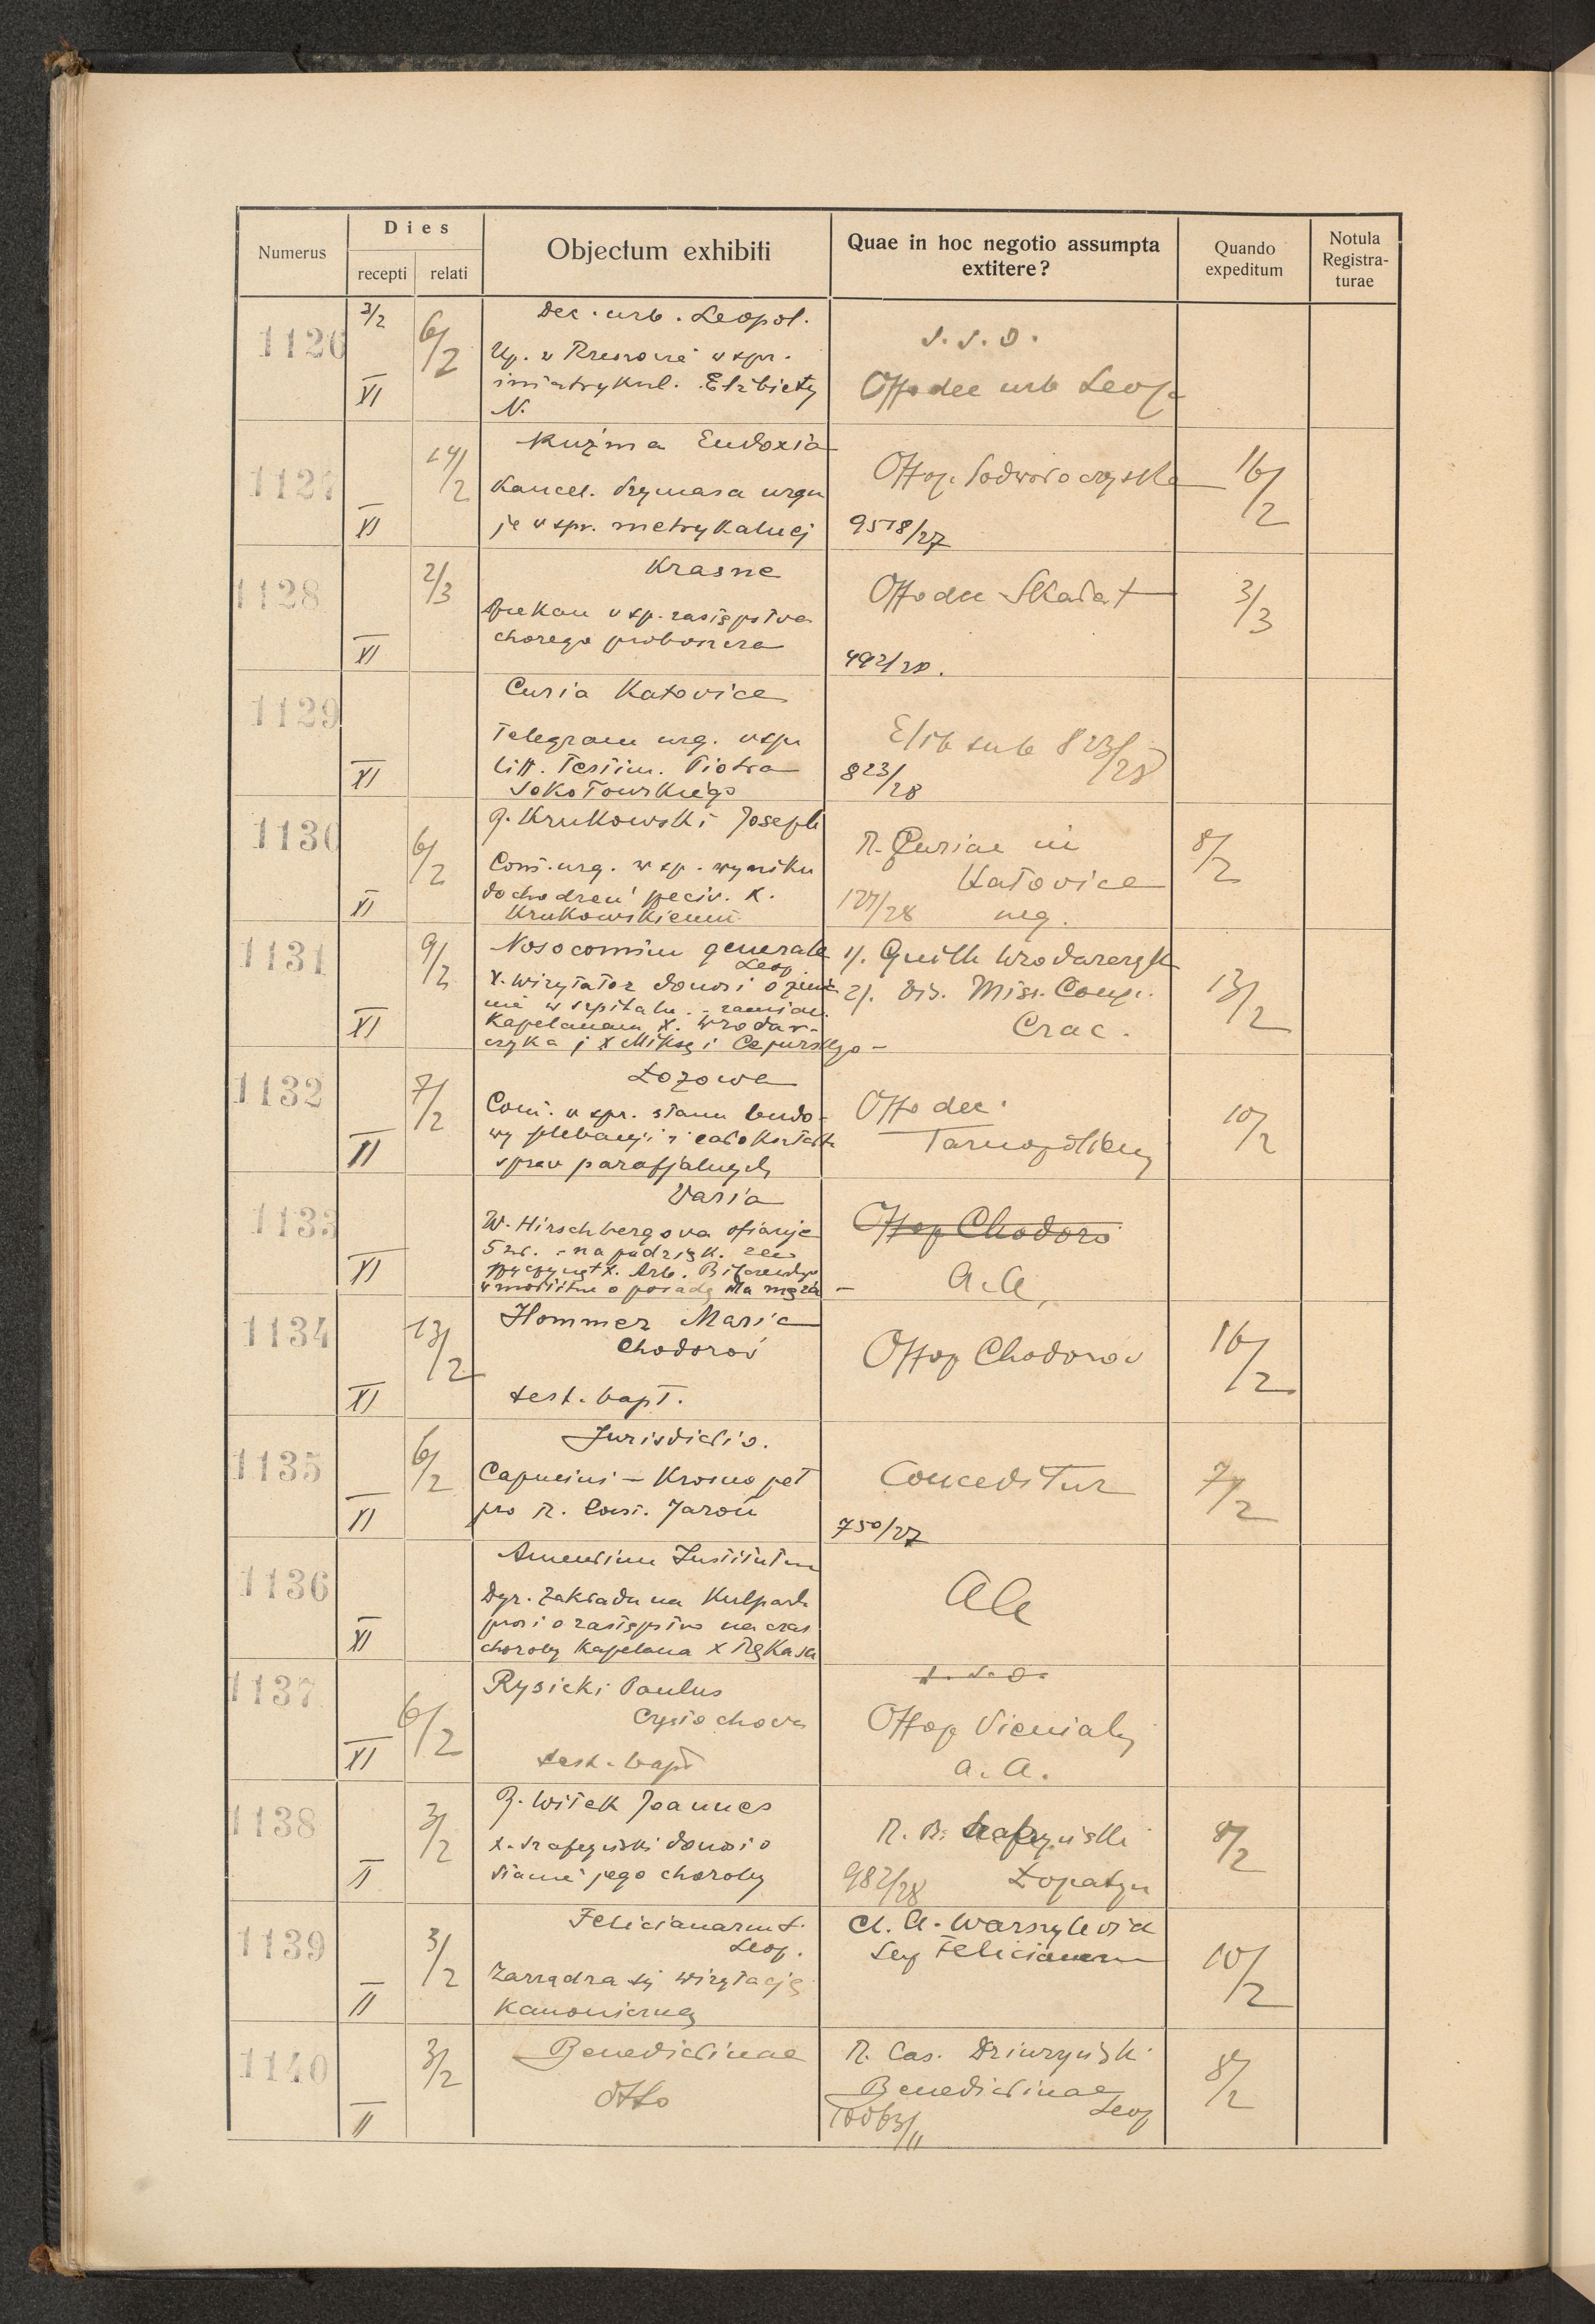 Numerus
Dies
recepti
relati
Objectum exhibiti
Quae in hoc negotio assumpta extitere?
Quando expeditum
Notula Registra-turae
1126
3/2
XI
6/2
Dec. urb. Leopol.
w spr.
imatrykul. Elżbiety
N.
s. s. o.
Offo dec urb Leop
1127
XI
14/2
Kuźma Eudoxia
Kancel. Prymasa urgu
je w spr. metrykalnej
Offop. Podwołoczyska
9518/27
16/2
1128
XI
2/3
Krasne
Dziekan w sp. zastępstwa
chorego proboszcza
Offo dec Skałat
492/28.
3/3
1129
XI
Curia Katovice
Telegram urg. w spr
litt. Testim. Piotra
Sokołowskiego
Elib sub 823/28
823/28
1130
XI
6/2
P. Krukowski Joseph
Cons. urg. w sp. wyniku
dochodzeń przeciw. X.
Krukowskiemu
R. Curiae in
Katovice
127/28 neg.
8/2
1131
XI
9/2
Nosocomium generale
Leop
X. wizytator donosi o zmia
nie w szpitalu. - zamian.
Kapelanam X. Wrodar-
czyka i X Miksę i Cepurskiego -
1/. Guilh Wrodarczyk
2/. Vis. Miss. Congr.
Crac.
13/2
1132
II
7/2
Łozowa
Cons. w spr. stanu budo-
wy plebanji i całokształtu
spraw parafjalnych
Offo dec.
Tarnopolien
10/2
1133
XI
Varia
W. Hirschbergowa ofiaruje
5 zł. - na podzięk. za
X. Arb. Bilczewskiego
w modlitw o posadę dla męża -
Offop Chodoro
a. a,
1134
XI
13/2
Hommer Maria
Chodorow
test. bapt.
Offop Chodorow
16/2
1135
XI
6/2
Jurisdictio.
Capucini - Krosno pet
pro R. Cons. Jaroń
Conceditur
750/27
7/2
1136
XI
Amentium Institutum
Dyr. Zakładu na Kulpark
prosi o zastępstwo na czas
choroby Kapelana X Rękasa
aa
1137
XI
6/2
Rysicki Paulus
Czystochowa
test. bapt
s. s. o.
Offop Vieniaby
a. a.
1138
II
3/2
P. Witek Joannes
X. Szafczyński donosi o
stanie jego choroby
R. B. Szafczyński
982/28 Łopatyn
8/2
1139
II
3/2
Felicianarum t.
Leop.
Zarządza się wizytację
Kanoniczną
Cl. A. Warszylevicz
Leop Felicianarum
10/2
1140
II
3/2
Benedictinae
dtto
R. Cas. Dziurzyński
Benedictinae
Leop
1006 3/II
8/2